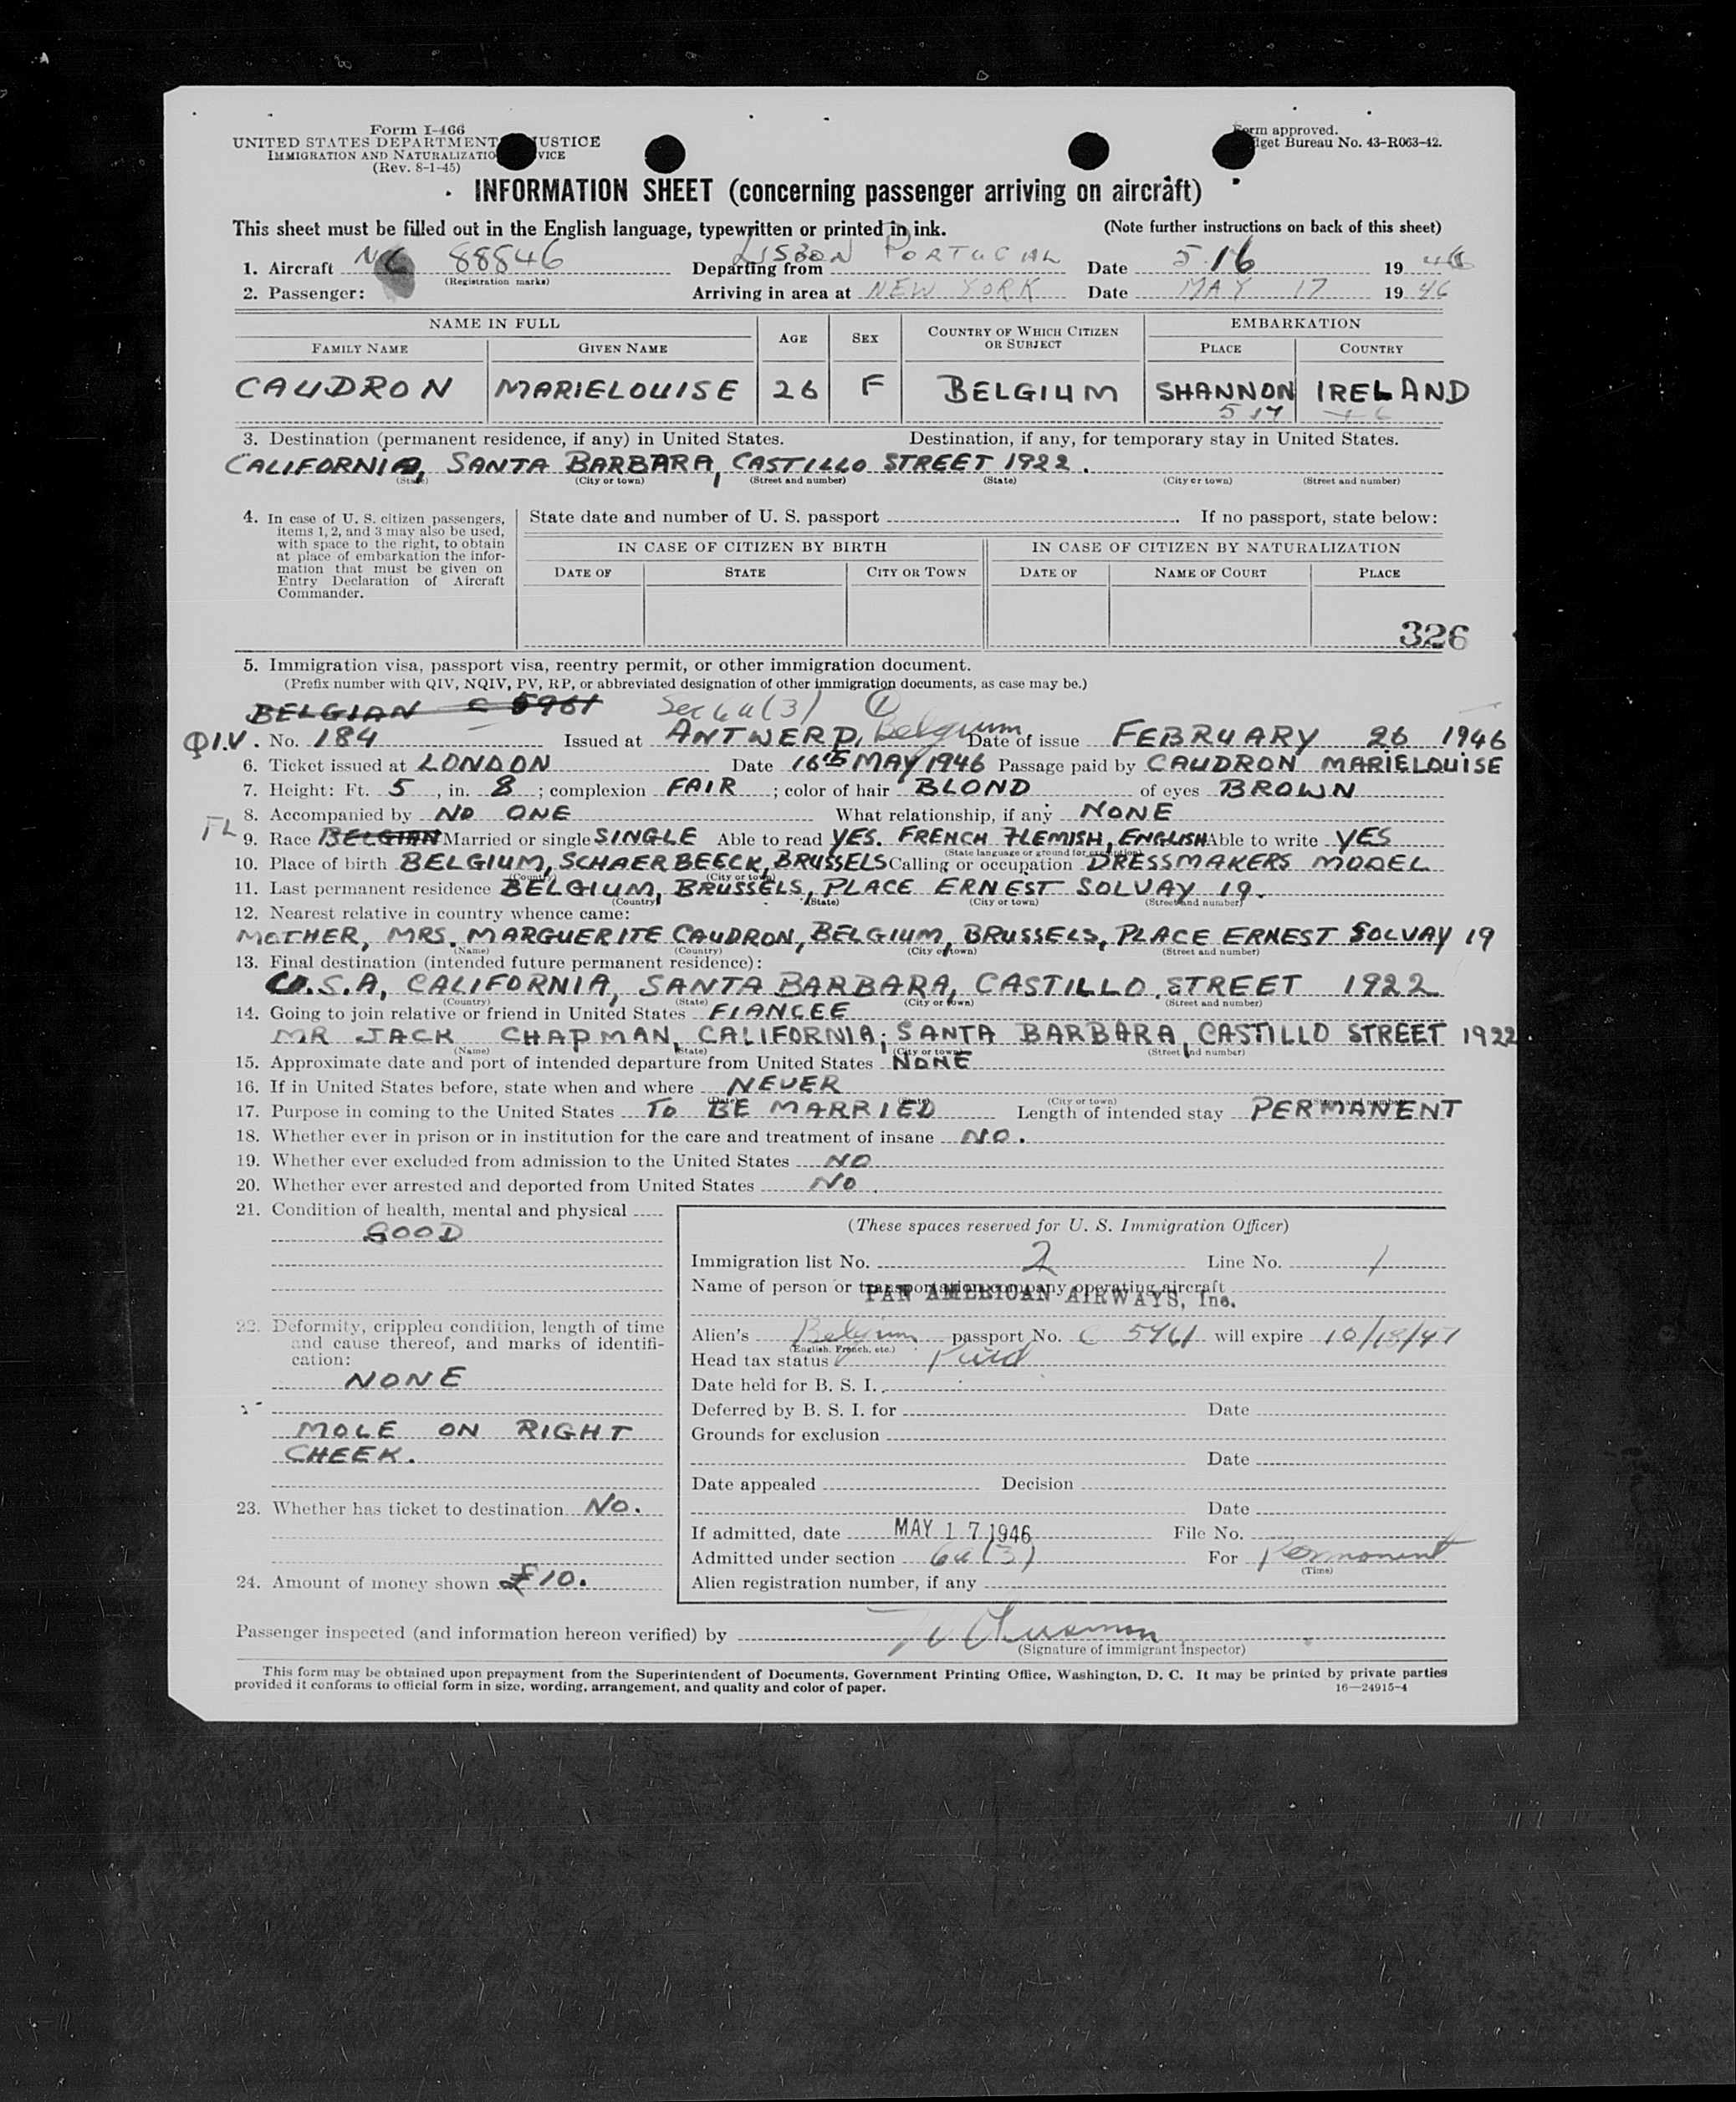 Form I-466
UNITED STATES DEPARTMENT JUSTICE
IMMIGRATION AND NATURALIZATIO VICE
(Rev. 8-1-45)
Form approved.
get Bureau No. 43-R063-42.
INFORMATION SHEET (concerning passenger arriving on aircraft)
This sheet must be filled out in the English language, typewritten or printed in ink. (Note further instructions on back of this sheet)
1. Aircraft NC 88846 Departing from LISBON PORTUGAL Date 5 16 19 46
(Registration marks)
2. Passenger: Arriving in area at NEW YORK Date MAY 17 19 46
NAME IN FULL AGE SEX COUNTRY OF WHICH CITIZEN OR SUBJECT EMBARKATION
FAMILY NAME GIVEN NAME PLACE COUNTRY
CAUDRON MARIELOUISE 26 F BELGIUM SHANNON IRELAND
5 17 46
3. Destination (permanent residence, if any) in United States. Destination, if any, for temporary stay in United States.
CALIFORNIA, SANTA BARBARA, CASTILLO STREET 1922.
(State) (City or town) (Street and number) (State) (City or town) (Street and number)
4. In case of U. S. citizen passengers, items 1, 2, and 3 may also be used, with space to the right, to obtain at place of embarkation the information that must be given on Entry Declaration of Aircraft Commander.
State date and number of U. S. passport . If no passport, state below:
IN CASE OF CITIZEN BY BIRTH IN CASE OF CITIZEN BY NATURALIZATION
DATE OF STATE CITY OR TOWN DATE OF NAME OF COURT PLACE
326
5. Immigration visa, passport visa, reentry permit, or other immigration document.
(Prefix number with QIV, NQIV, PV, RP, or abbreviated designation of other immigration documents, as case may be.)
BELGIAN C 5961 Sec 6a(3) 1
QI.V. No. 184 Issued at ANTWERP, Belgium Date of issue FEBRUARY 26 1946
6. Ticket issued at LONDON Date 16th MAY 1946 Passage paid by CAUDRON MARIELOUISE
7. Height: Ft. 5, in. 8; complexion FAIR; color of hair BLOND of eyes BROWN
8. Accompanied by NO ONE What relationship, if any NONE
FL
9. Race BELGIAN Married or single SINGLE Able to read YES. FRENCH FLEMISH, ENGLISH Able to write YES
(State language or ground for exemption)
10. Place of birth BELGIUM, SCHAERBEECK, BRUSSELS Calling or occupation DRESSMAKERS MODEL
(Country) (City or town)
11. Last permanent residence BELGIUM, BRUSSELS, PLACE ERNEST SOLVAY 19.
(Country) (State) (City or town) (Street and number)
12. Nearest relative in country whence came:
MOTHER, MRS. MARGUERITE CAUDRON, BELGIUM, BRUSSELS, PLACE ERNEST SOLVAY 19
(Name) (Country) (City or town) (Street and number)
13. Final destination (intended future permanent residence):
U.S.A, CALIFORNIA, SANTA BARBARA, CASTILLO STREET 1922
(Country) (State) (City or town) (Street and number)
14. Going to join relative or friend in United States FIANCEE
MR JACK CHAPMAN, CALIFORNIA; SANTA BARBARA, CASTILLO STREET 1922.
(Name) (State) (City or town) (Street and number)
15. Approximate date and port of intended departure from United States NONE
16. If in United States before, state when and where NEVER
(Date) (State) (City or town) (Street and number)
17. Purpose in coming to the United States TO BE MARRIED Length of intended stay PERMANENT
18. Whether ever in prison or in institution for the care and treatment of insane NO.
19. Whether ever excluded from admission to the United States NO
20. Whether ever arrested and deported from United States NO.
21. Condition of health, mental and physical
GOOD
22. Deformity, crippled condition, length of time and cause thereof, and marks of identification:
NONE
MOLE ON RIGHT
CHEEK.
23. Whether has ticket to destination NO.
24. Amount of money shown £10.
(These spaces reserved for U. S. Immigration Officer)
Immigration list No. 2 Line No. 1
Name of person or transportation company operating aircraft
PAN AMERICAN AIRWAYS, Inc.
Alien's Belgium passport No. C 5961 will expire 10/18/47
(English, French, etc.)
Head tax status Paid
Date held for B. S. I.
Deferred by B. S. I. for Date
Grounds for exclusion
Date
Date appealed Decision
Date
If admitted, date MAY 17 1946 File No.
Admitted under section 6a(3) For Permanent
(Time)
Alien registration number, if any
Passenger inspected (and information hereon verified) by
(Signature of immigrant inspector)
This form may be obtained upon prepayment from the Superintendent of Documents, Government Printing Office, Washington, D. C. It may be printed by private parties
provided it conforms to official form in size, wording, arrangement, and quality and color of paper. 16—24915-4